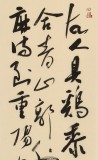 故人具鷄黍
合青山郭
麻待到重陽